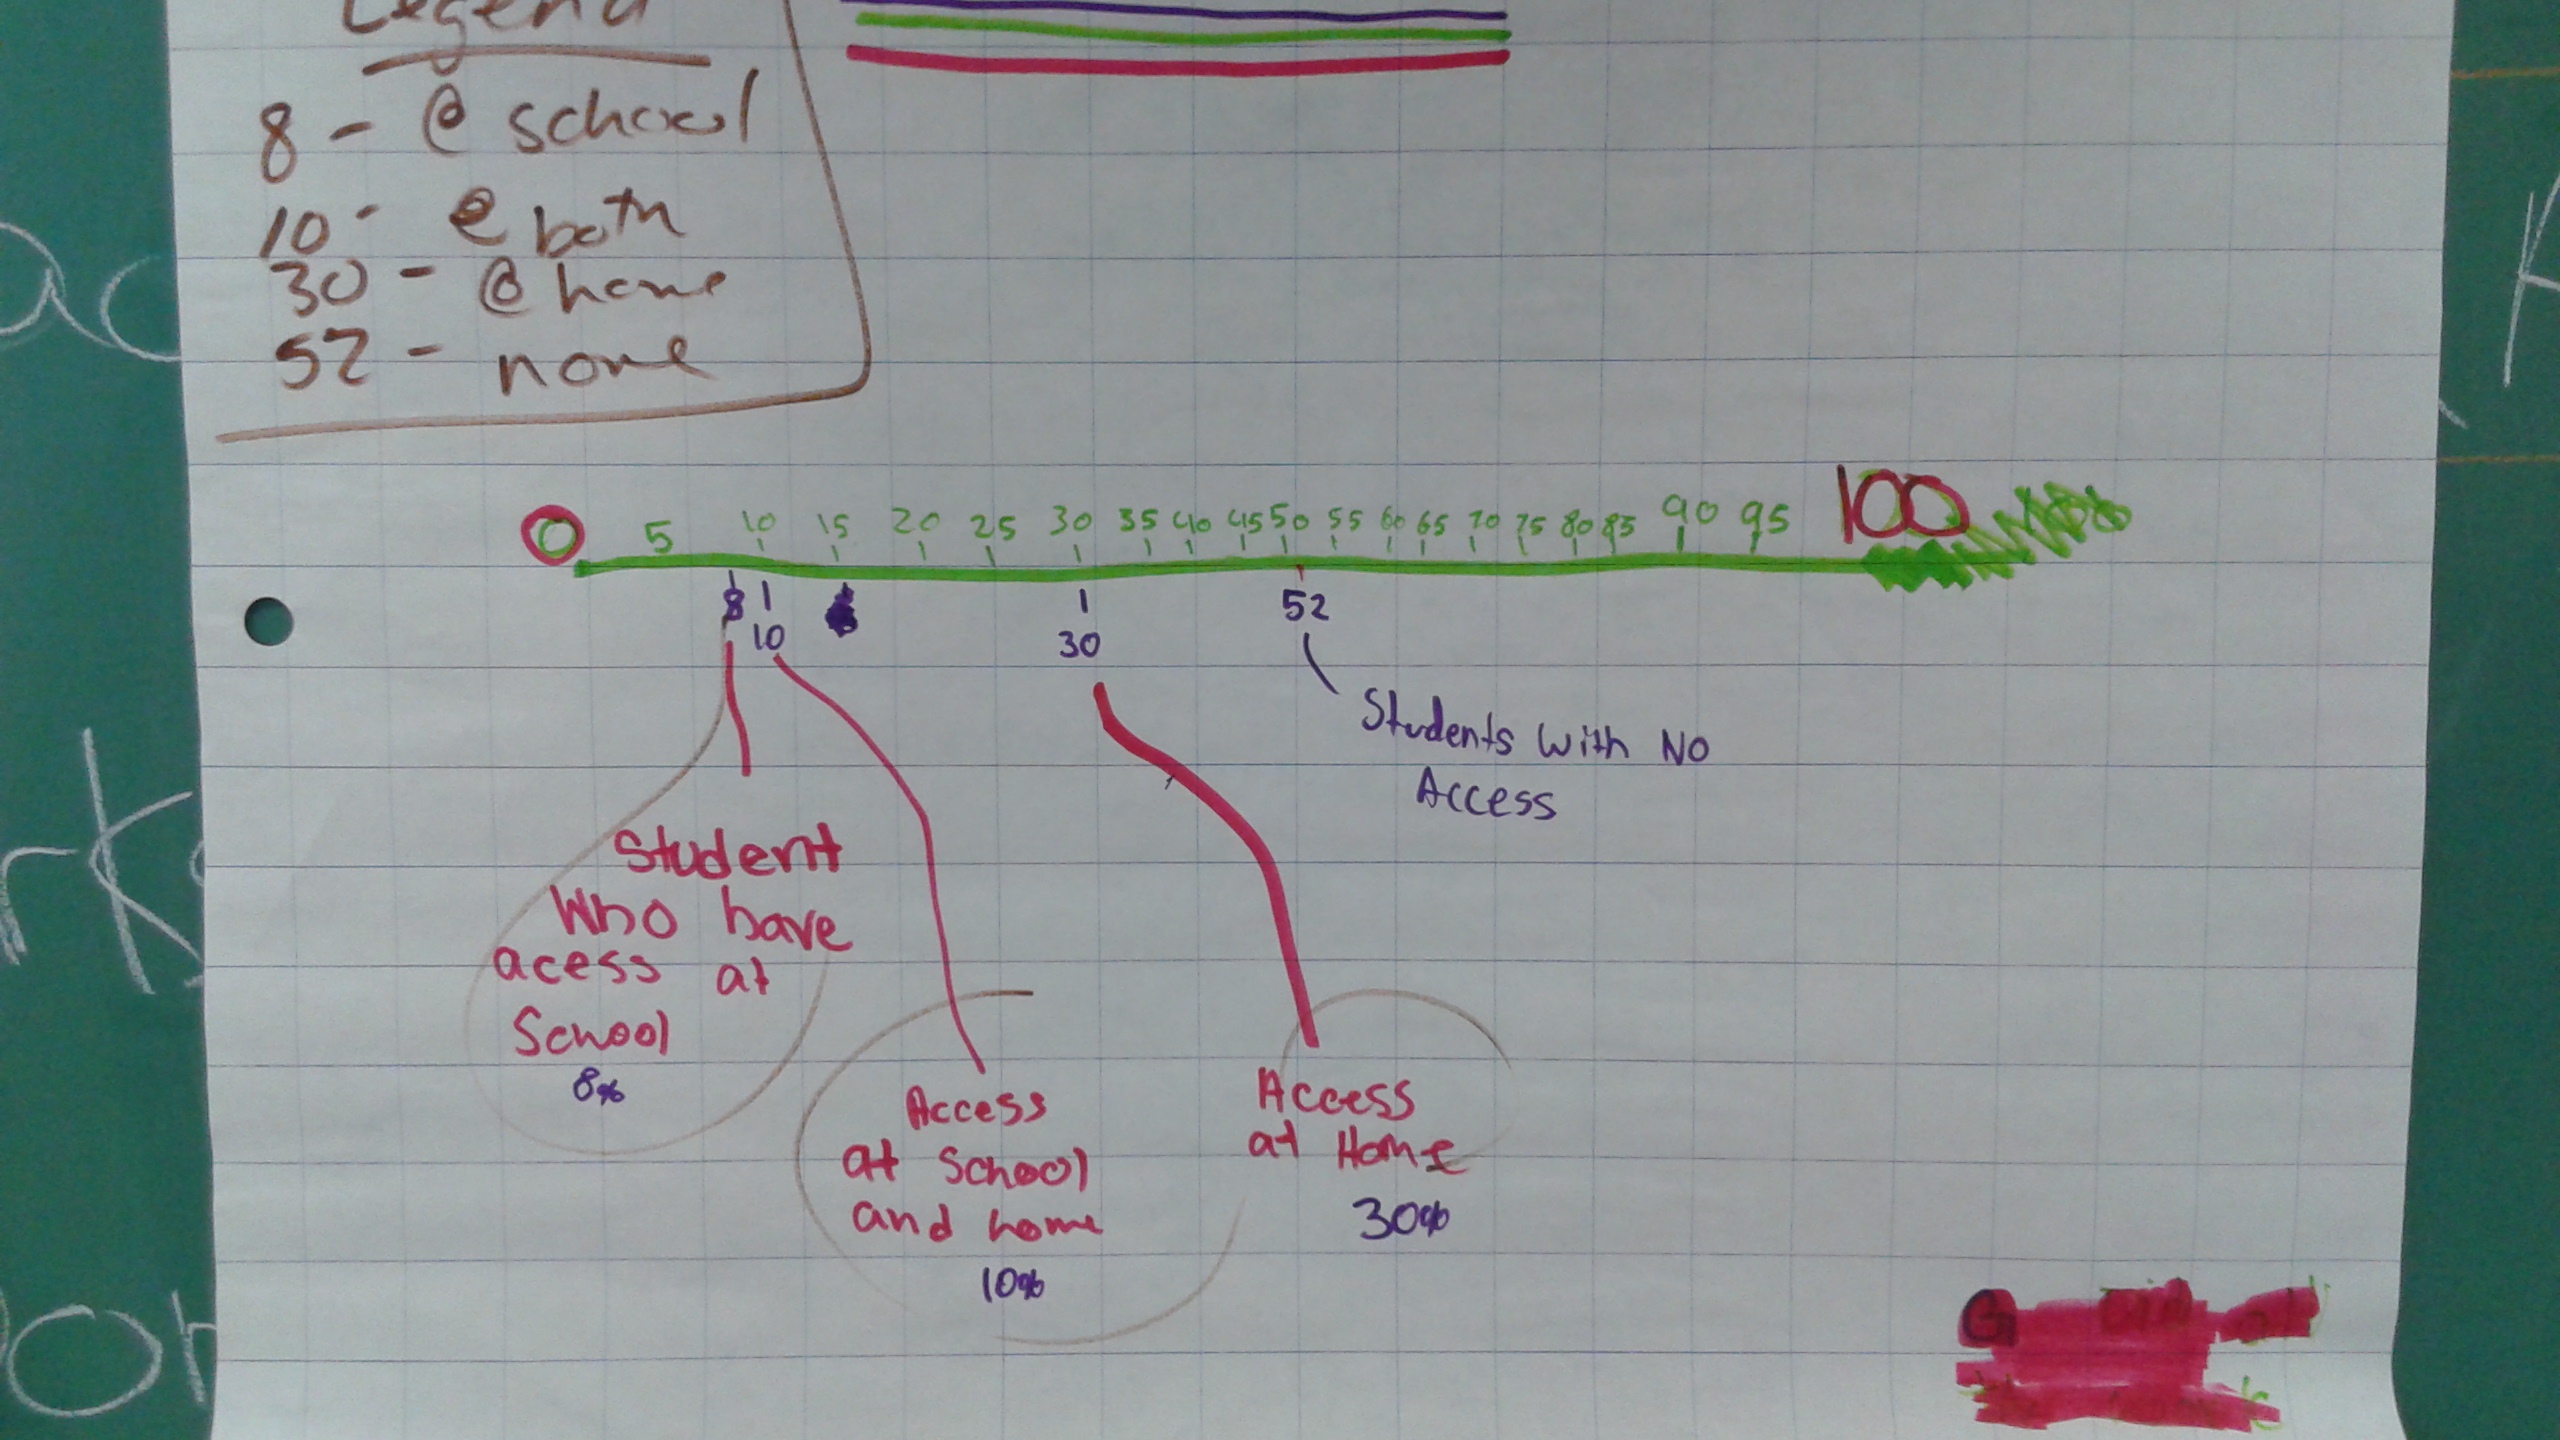 Legend
8 - @ school
10 - @ both
30 - @ home
52 - none
0 5 10 15 20 25 30 35 40 45 50 55 60 65 70 75 80 85 90 95 100
8 10 30 52
Students With No
Access
Student
Who have
acess at
School
8%
Access
at School
and home
10%
Access
at Home
30%